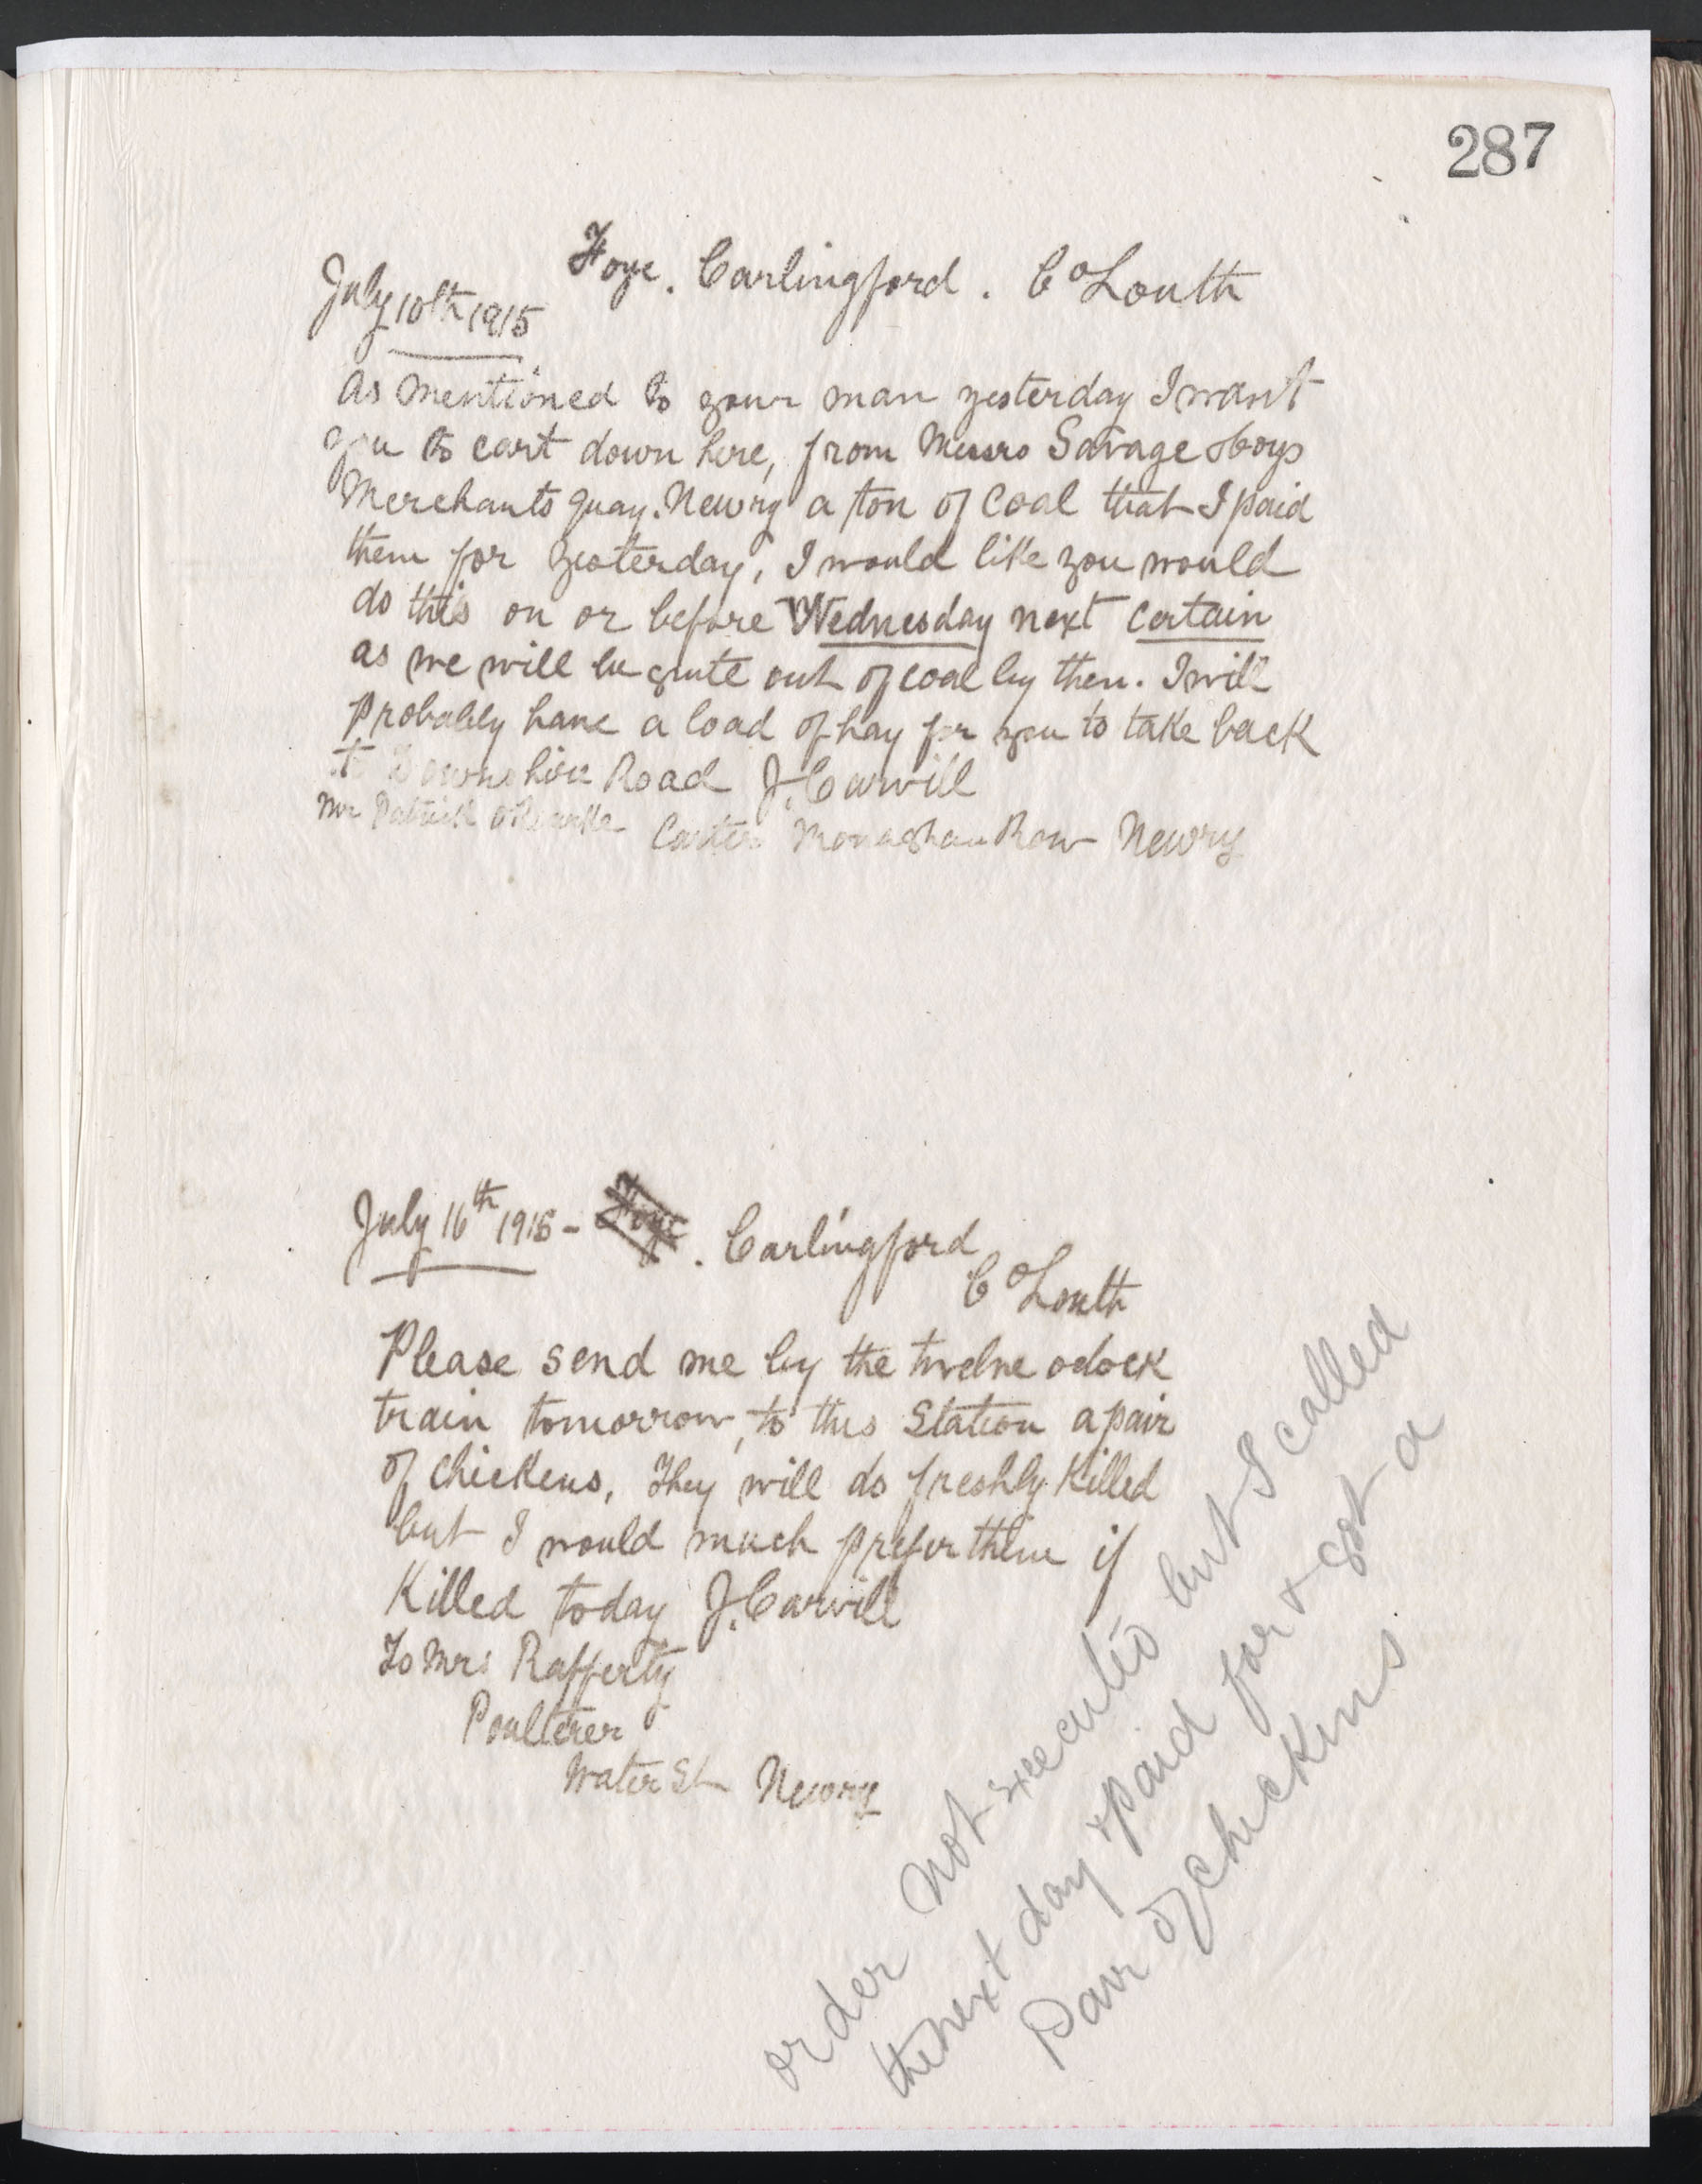 287
Foye. Carlingford. Co Louth
July 10th 1915
As mentioned to your man yesterday I want
you to cart down here, from Messrs Savage &
Merchants quay. Newry a ton of Coal that I paid
them for yesterday, I would like you would
do this on or before Wednesday next certain
as we will be quite out of coal by then. I will
probably have a load of hay for you to take back
to Downshire Road J. Carvill
Mr Patrick O'Rourke Carter Monaghan Row Newry
July 16th 1915 - Foye. Carlingford
Co Louth
Please send me by the twelve oclock
train tomorrow, to this Station a pair
of chickens, They will do freshly killed
but I would much prefer them if
Killed today J. Carvill
To Mrs Rafferty
Poulterer
Water St Newry
order not executed but I called
the next day & paid for & got a
pair of chickens